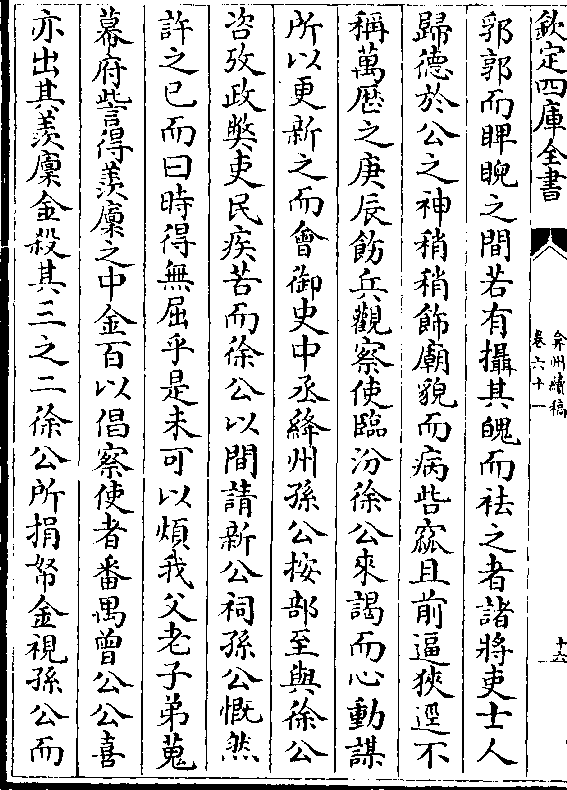 欽定四庫全書
弇州續稿
卷六十一
十六
郛郭而睥睨之間若有攝其魄而袪之者諸將吏士人
歸德於公之神稍稍飾廟貌而病呰窳且前逼狹逕不
稱萬歴之庚辰飭兵觀察使臨汾徐公來謁而心動謀
所以更新之而會御史中丞絳州孫公按部至與徐公
咨攷政獘吏民疾苦而徐公以間請新公祠孫公慨然
許之已而曰時得無屈乎是未可以煩我父老子弟蒐
幕府訾得羨廩之中金百以倡察使者番禺曾公公喜
亦出其羨廩金殺其三之二徐公所捐帑金視孫公而